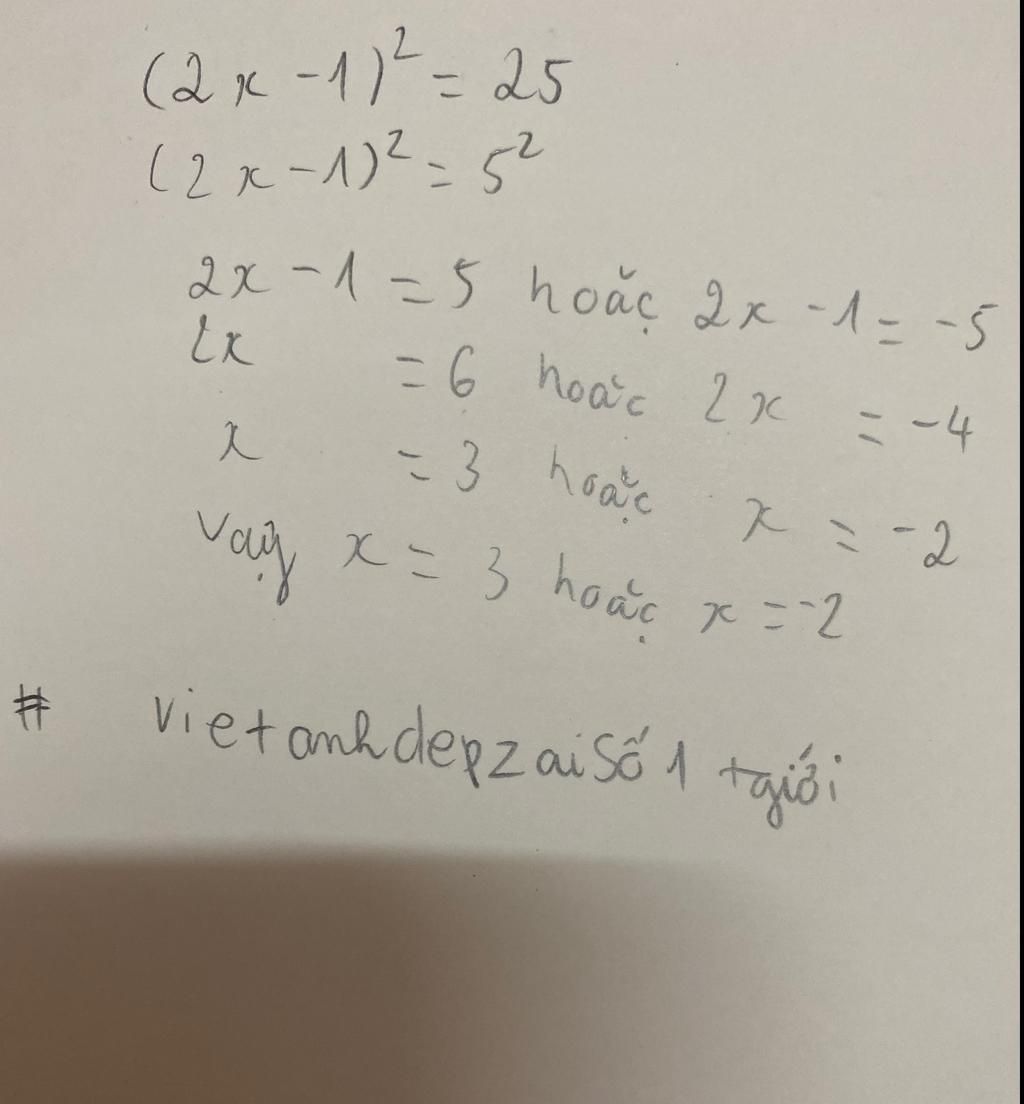 (2x - 1)² = 25
(2x - 1)² = 5²
2x - 1 = 5 hoặc 2x - 1 = -5
2x = 6 hoăc 2x = -4
x = 3 hoặc x = -2
Vậy x = 3 hoặc x = -2
# vietanhdepzaiSố 1 tgiới